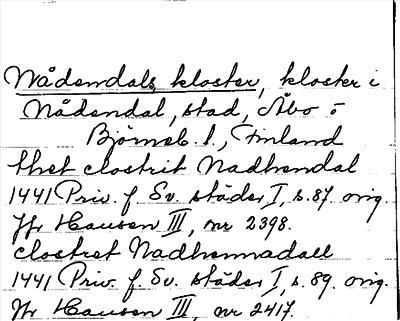 Nådendals kloster, kloster i
Nådendal, stad, Åbo o
Björneb. l., Finland
thet clostrit Nadhendal
1441 Priv. f Sv. städer I, s. 87. orig.
Jfr Hausen III, nr 2398.
clostret Nadhennadall
1441 Priv. f. Sv. städer I, s. 89. orig.
Jfr Hausen III, nr 2417.